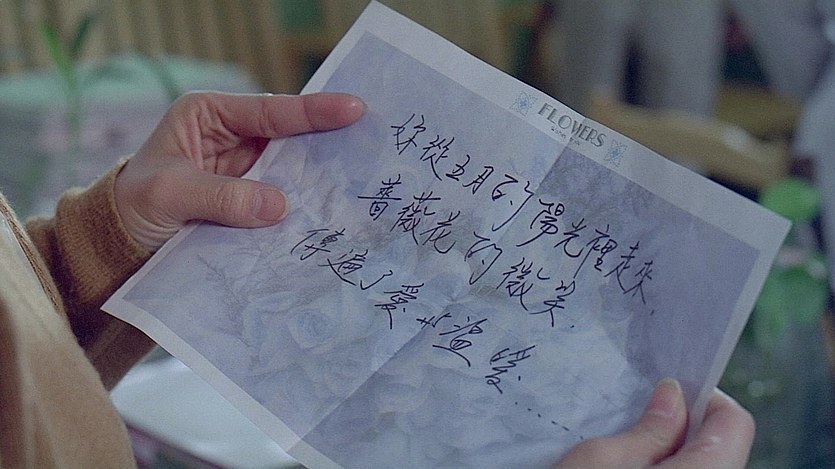 FLOWERS
妳從五月的陽光裡走來,
薔薇花的微笑,
傳遍了愛與溫暖......